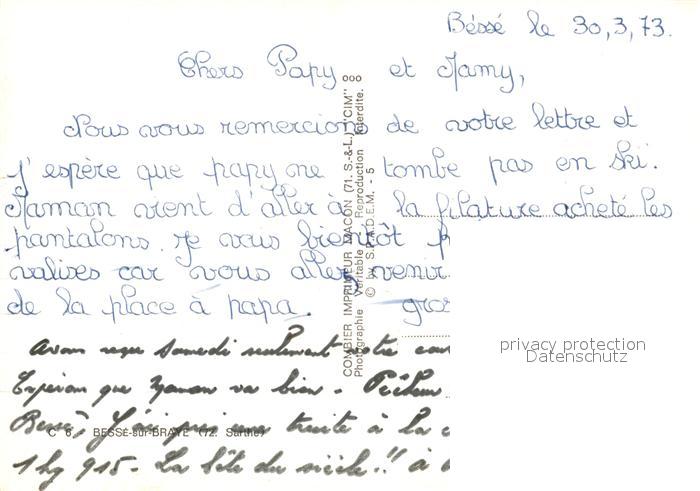 Béssé le 30,3,73.
Chers Papy et Mamy,
Nous vous remercions de votre lettre et
j'espère que papy ne tombe pas en ski.
Maman vient d'aller à la filature acheté les
pantalons. je vais bientôt
valises car vous aller venir
de la place à papa. gros
Avons reçu Samedi seulement votre
Espérons que Maman va bien - Pêcheur
Bessé, J'ai pris une truite à la
1 kg 915 - La bête du siècle !! à
C 6. BESSÉ-sur-BRAYE (72. Sarthe)
COMBIER IMPRIMEUR MACON (71. S.-&-L.) "CIM"
Photographie Véritable Reproduction Interdite.
© by S.P.A.D.E.M. - 5
privacy protection
Datenschutz